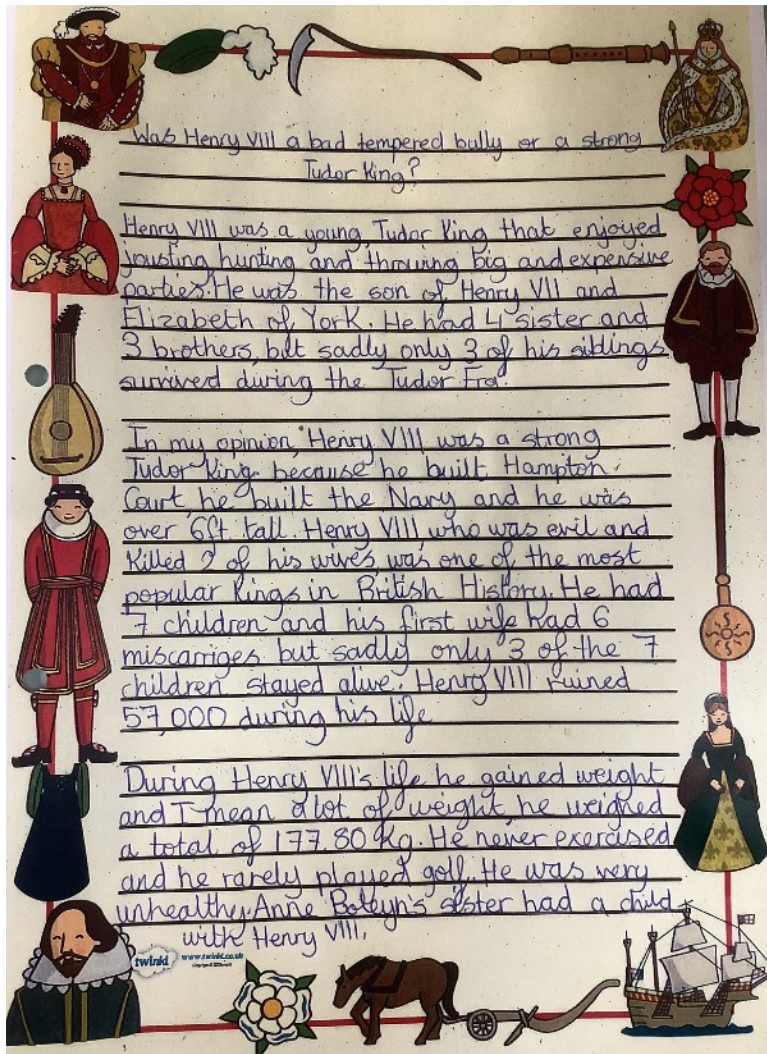 Was Henry VIII a bad tempered bully or a strong
Tudor King?
Henry VIII was a young, Tudor King that enjoyed
jousting hunting and throwing big and expensive
parties. He was the son of Henry VII and
Elizabeth of York. He had 4 sister and
3 brothers, but sadly only 3 of his siblings
survived during the Tudor Era.
In my opinion, Henry VIII was a strong
Tudor King because he built Hampton
Court, he built the Navy and he was
over 6ft tall. Henry VIII, who was evil and
killed 2 of his wives, was one of the most
popular Kings in British History. He had
7 children and his first wife had 6
miscarriges but sadly only 3 of the 7
children stayed alive. Henry VIII ruined
57,000 during his life
During Henry VIII's life he gained weight
and I mean alot of weight, he weighed
a total of 177.80 Kg. He never exercised
and he rarely played golf. He was very
unhealthy. Anne Boleyn's sister had a child
with Henry VIII.
twinkl www.twinkl.co.uk